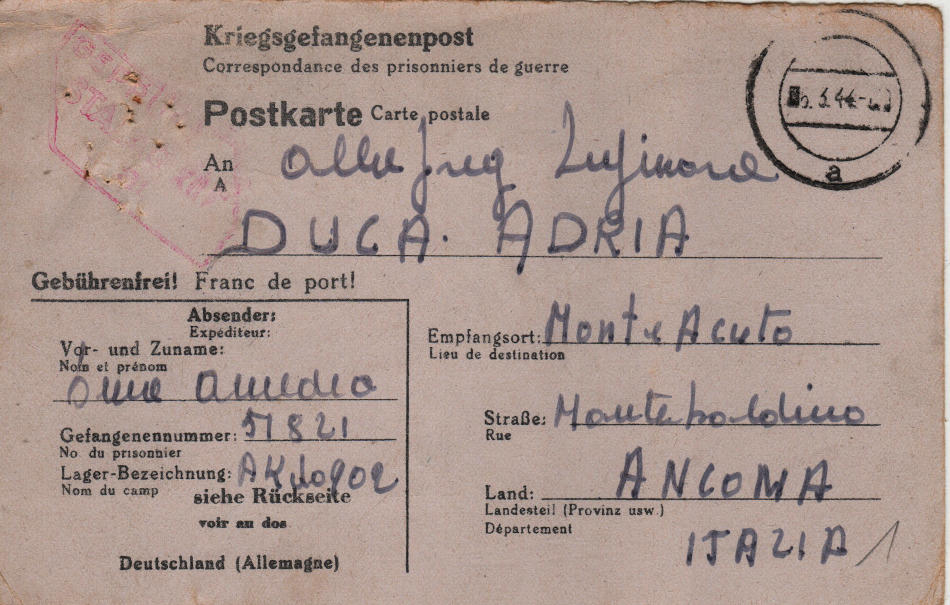 Kriegsgefangenenpost
Correspondance des prisonniers de guerre
Postkarte Carte postale
An
A
DUCA. ADRIA
Gebührenfrei! Franc de port!
Absender:
Expéditeur:
Vor- und Zuname:
Nom et prénom
Gefangenennummer: 51821
No. du prisonnier
Lager-Bezeichnung:
Nom du camp
siehe Rückseite
voir au dos
Deutschland (Allemagne)
Empfangsort: Monte Acuto
Lieu de destination
Straße:
Rue
Land: ANCOMA
Landesteil (Provinz usw.)
Département
ITALIA
a